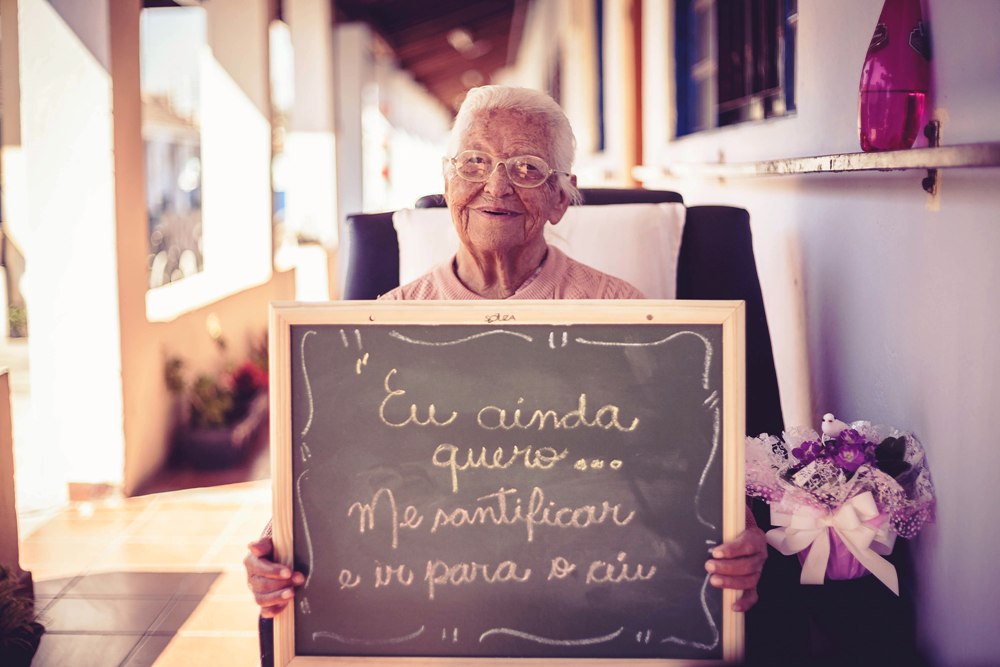 "Eu ainda
quero...
Me santificar
e ir para o céu"